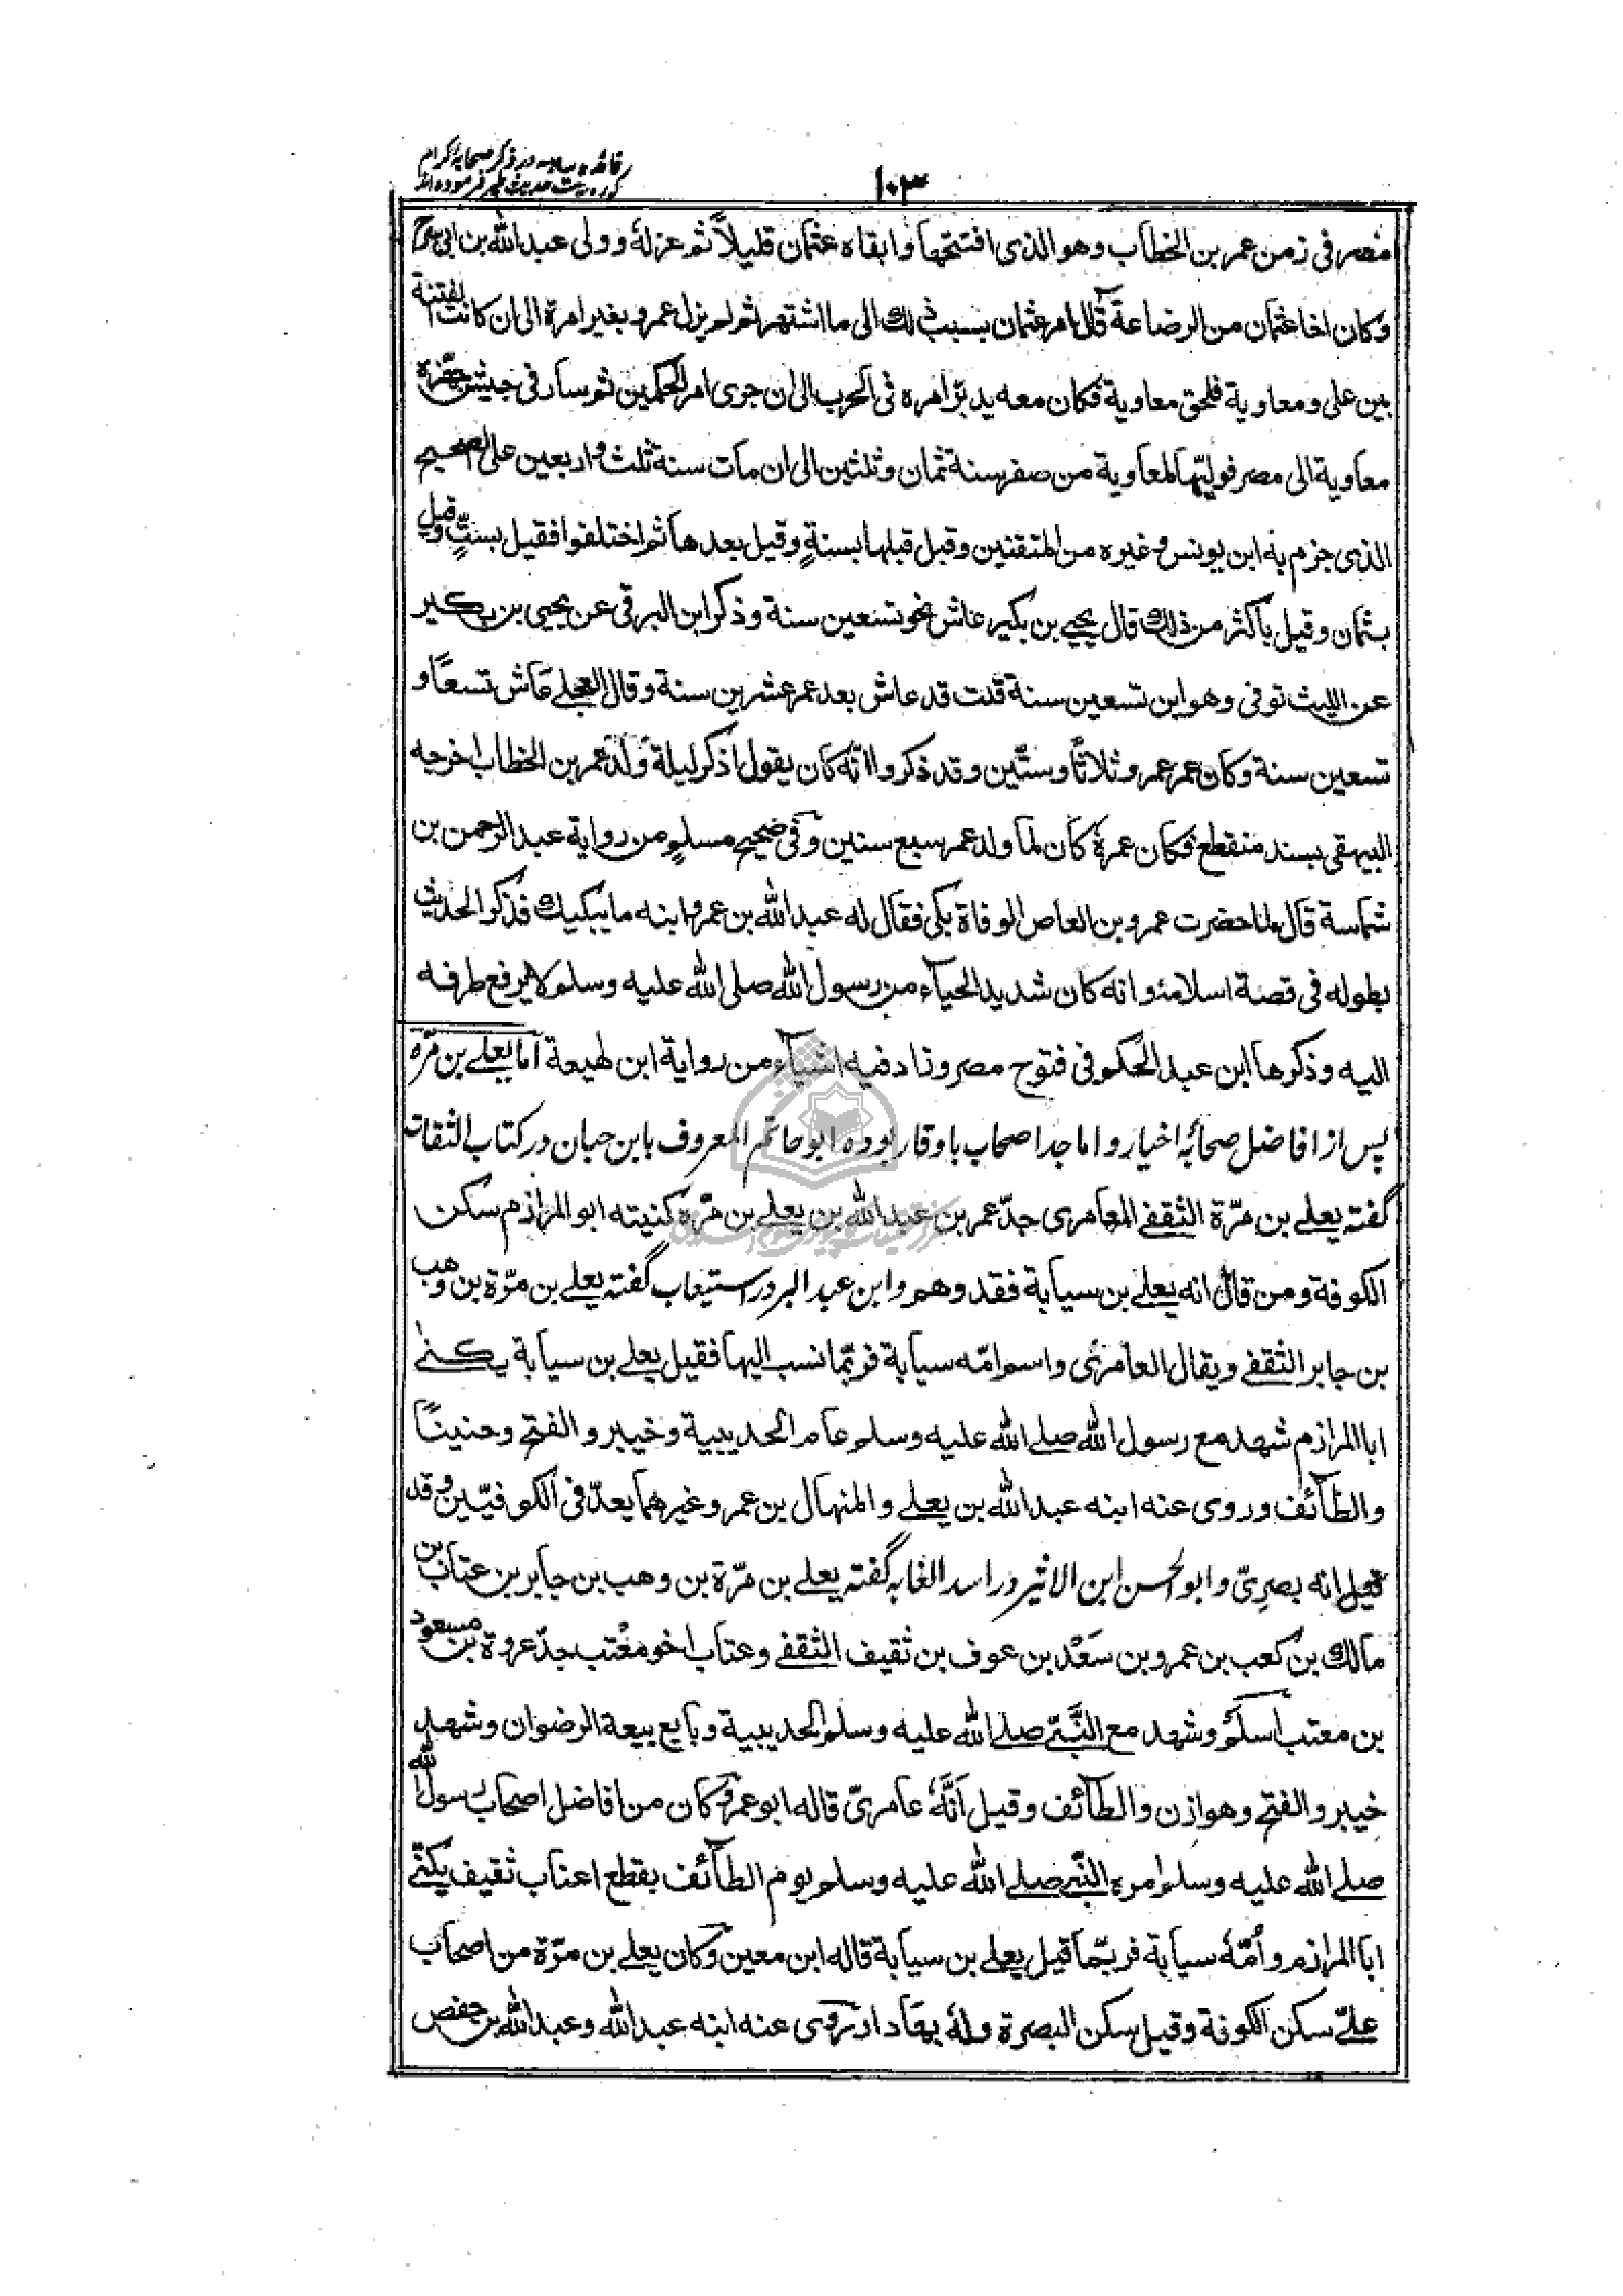 فائده سادسه در ذکر صحابه کرام
که روایت حدیث طیر فرموده‌اند
۱۰۳
مصر فی زمن عمر بن الخطاب وهو الذی افتتحها وابقاه عثمان قلیلاً ثم عزله وولی عبد الله بن ابی سرح
وکان اخا عثمان من الرضاعة فآل امر عثمان بسبب ذلك الی ما اشتهر ثم لم یزل عمرو بغیر امرة الی ان کانت الفتنة
بین علی ومعاویة فلحق معاویة فکان معه یدبّر امره فی الحرب الی ان جری امر الحکمین ثم سار فی جیش جهّزه
معاویة الی مصر فولیها لمعاویة من صفر سنة ثمان وثلثین الی ان مات سنة ثلث واربعین علی الصحیح
الذی جزم به ابن یونس وغیره من المتقنین وقیل قبلها بسنةٍ وقیل بعدها ثم اختلفوا فقیل بستٍّ وقیل
بثمان وقیل باکثر من ذلك قال یحیی بن بکیر عاش نحو تسعین سنة وذکر ابن البرقی عن یحیی بن بکیر
عن اللیث توفی وهو ابن تسعین سنة قلت قد عاش بعد عمر عشرین سنة وقال العجلی عاش تسعًا و
تسعین سنة وکان عمر عمر وثلاثًا وستّین وقد ذکروا انّه کان یقول اذکر لیلة وُلد عمر بن الخطاب اخرجه
البیهقی بسند منقطع فکان عمرهٗ کان لما ولد عمر سبع سنین وفی صحیح مسلمٍ من روایة عبد الرحمن بن
شماسة قال لما حضرت عمرو بن العاص الوفاة بکی فقال له عبد الله بن عمرو ابنه ما یبکیك فذکر الحدیث
بطوله فی قصة اسلامه وانه کان شدید الحیاء من رسول الله صلی الله علیه وسلم لا یرفع طرفه
الیه وذکرها ابن عبد الحکم فی فتوح مصر وزاد فیه اشیاء من روایة ابن لهیعة اما یعلے بن مرّه
پس از افاضل صحابهٔ اخیار و اماجد اصحاب با وقار بوده ابو حاتم المعروف بابن حبان در کتاب الثقات
گفته یعلے بن مرّة الثقفے العامری جدّ عمر بن عبد الله بن یعلے بن مرّة کنیته ابو المرازم سکن
الکوفة ومن قال انه یعلے بن سیابة فقد وهم و ابن عبد البر در استیعاب گفته یعلے بن مرّة بن وهب
بن جابر الثقفے ویقال العامری واسم امّه سیابة فربّما نسب الیها فقیل یعلے بن سیابة یکنے
ابا المرازم شهد مع رسول الله صلے الله علیه وسلم عام الحدیبیة وخیبر والفتح وحنینًا
والطآئف وروی عنه ابنه عبد الله بن یعلے والمنهال بن عمرو وغیرهما یعدّ فی الکوفیّین وقد
قیل انه بصریّ و ابو الحسن ابن الاثیر در اسد الغابه گفته یعلے بن مرّة بن وهب بن جابر بن عتاب بن
مالك بن کعب بن عمرو بن سَعْد بن عوف بن ثقیف الثقفے وعتاب اخو معتب جدّ عروة بن مسعود
بن معتب اسلم وشهد مع النّبیّ صلے الله علیه وسلم الحدیبیة وبایع بیعة الرضوان وشهد
خیبر والفتح وهوازن والطآئف وقیل انَّهٗ عامریّ قاله ابو عمرو وکان من افاضل اصحاب رسول الله
صلے الله علیه وسلم امره النّبی صلے الله علیه وسلم یوم الطآئف بقطع اعناب ثقیف یکنّے
ابا المرازم واُمّهٗ سیابة فربّما قیل یعلے بن سیابة قاله ابن معین وکان یعلے بن مرّة من اصحاب
علیّ سکن الکوفة وقیل سکن البصرة ولهٗ بها دار روی عنه ابنه عبد الله وعبد الله بن حفص